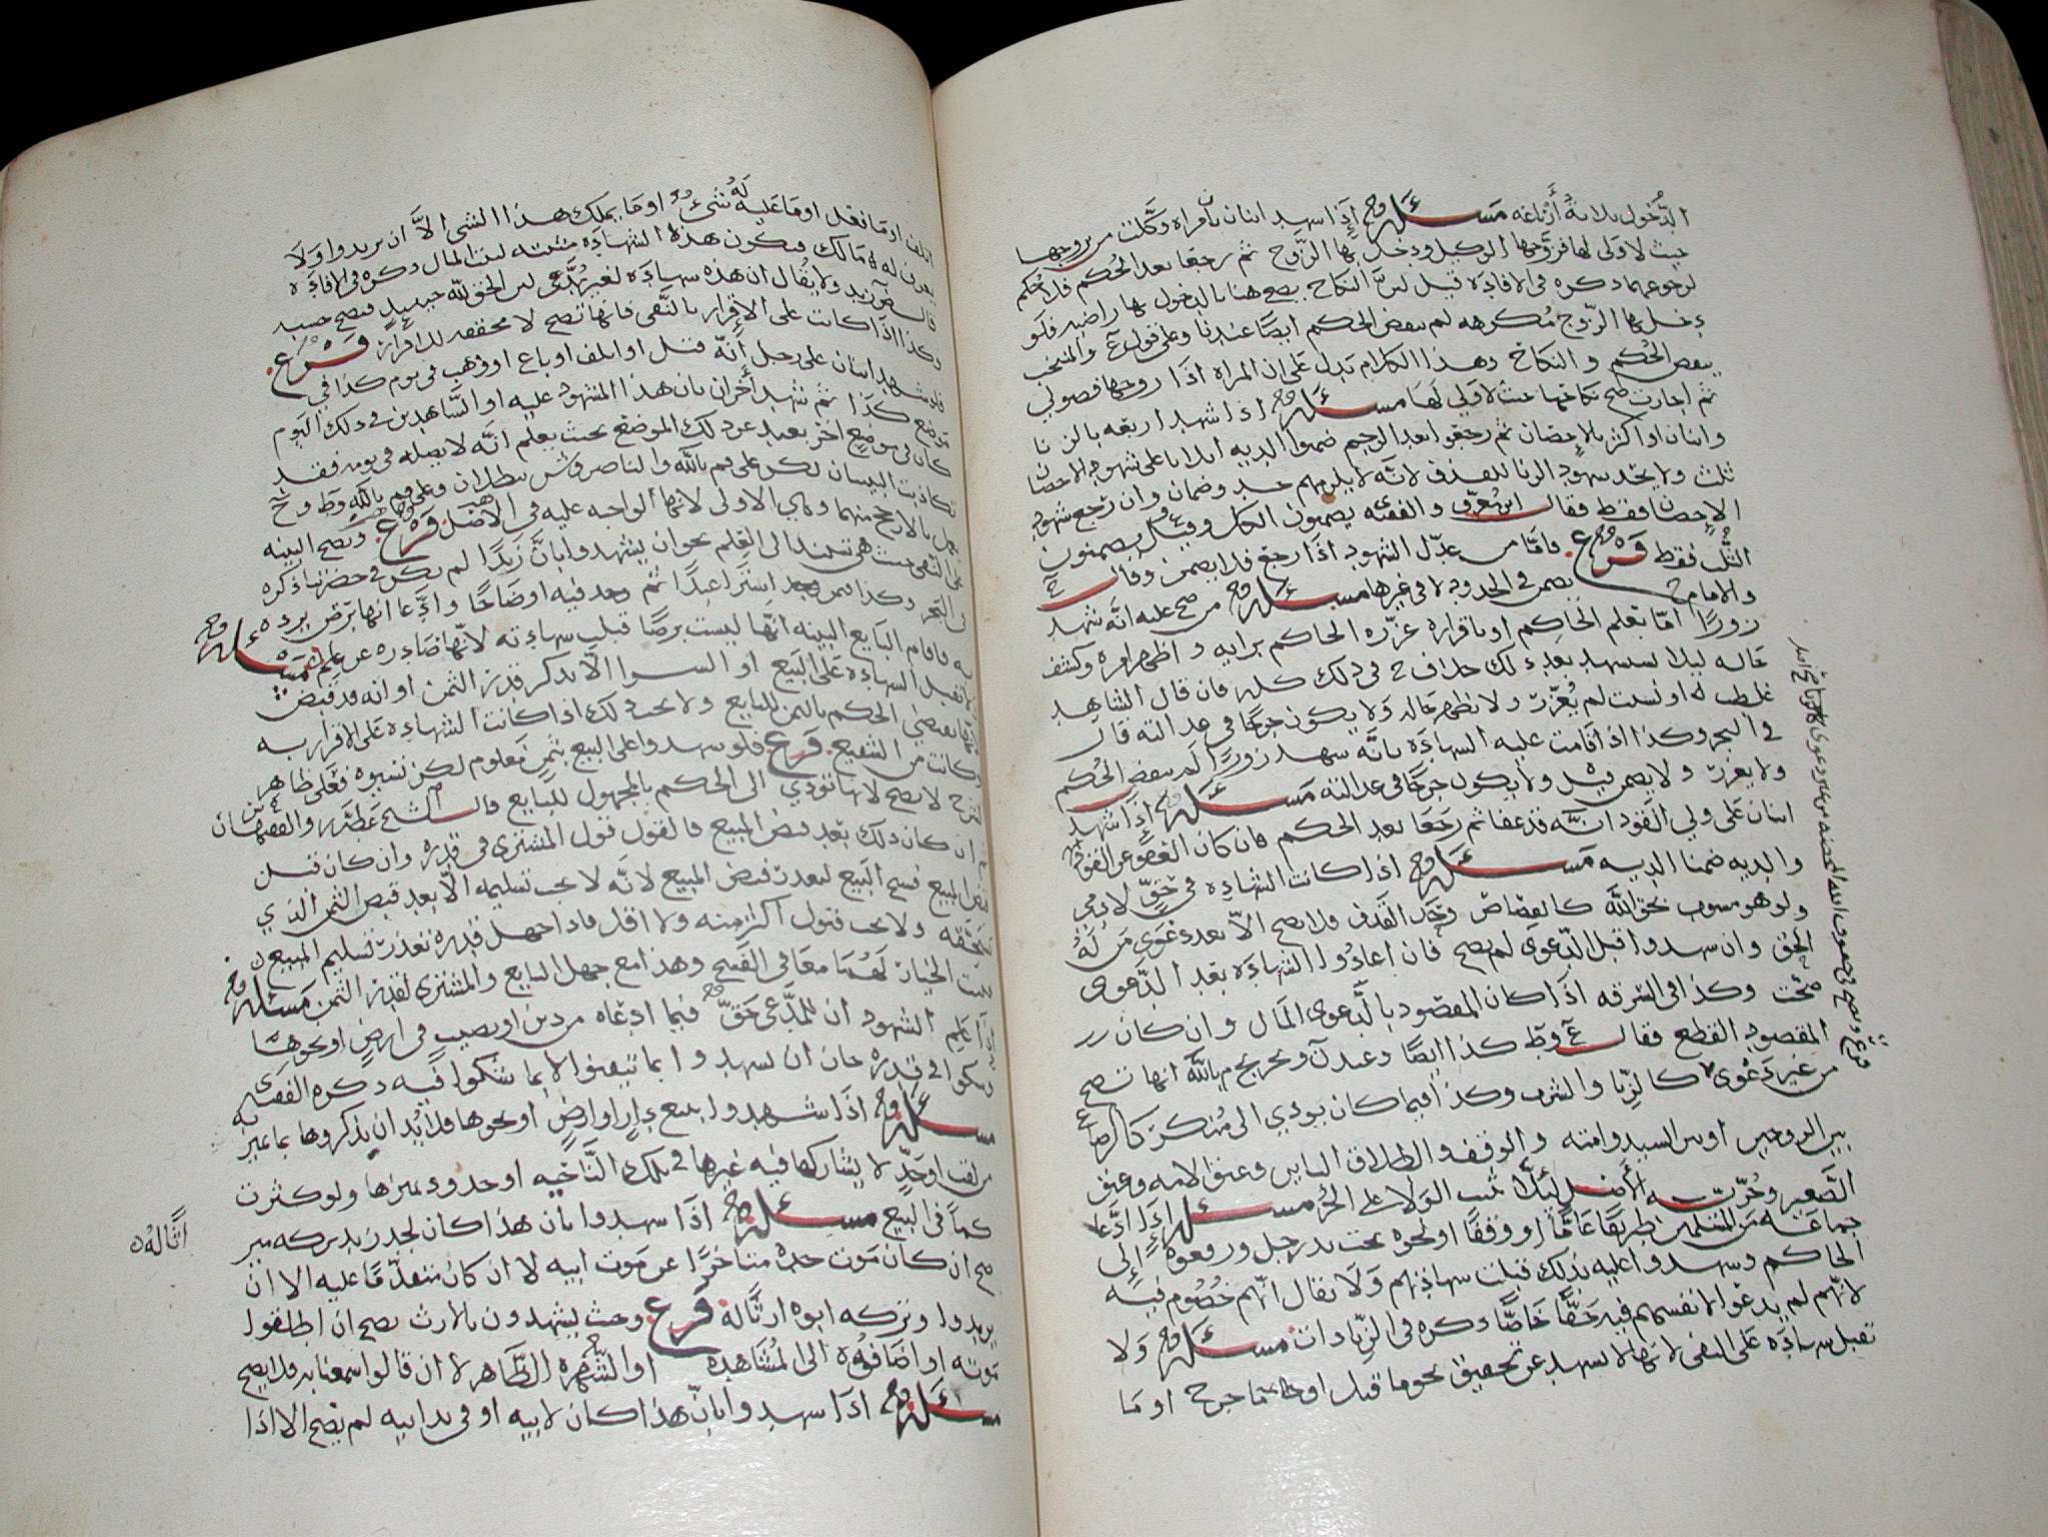 الدخول بلا نه أرباعه مسئله اذا شهد اثنان بأن امراه وكلت من يزوجها
حيث لا ولي لها فزوجها الوكيل ودخل بها الزوج ثم رجعا بعد الحكم فلا حكم
لرجوعهما ذكره في الافاده قيل لان النكاح يصح هنا بالدخول بها راضيه فلو
دخل بها الزوج مكرهه لم ينقض الحكم ايضا عندنا وعلى قول والمنتخب
ينقض الحكم والنكاح وهذا الكلام يدل على ان المراه اذا زوجها فضولي
ثم اجازت صح نكاحها حيث لا ولي لها مسئله اذا شهد اربعه بالزنا
واثنان او اكثر بالاحصان ثم رجعوا بعد الرجم ضمنوا الديه اثلاثا على شهود الاحصان
ثلث ولا يحد شهود الزنا للقذف لانه لا يلزمهم حد وضمان وان رجع شهود
الاحصان فقط فقال ابن معرف والفقيه يضمنون الكل وقيل يضمنون
الثلث فقط فرع فاما من عدل الشهود اذا رجع فلا يضمن وقال
والامام ح يضمن في الحدود لا في غيرها مسئله من صح عليه انه شهد
زورا اما بعلم الحاكم او باقراره عزره الحاكم برايه واظهر امره وكشف
حاله ليلا يستشهد بعد ذلك خلاف ح في ذلك كله فان قال الشاهد
غلطت او نسيت لم يعزر ولا يظهر حاله ولا يكون جرحا في عدالته قال
في البحر وكذا اذا قامت عليه الشهاده بانه شهد زورا لم ينقض الحكم
ولا يعزر ولا يضمن قيل ولا يكون جرحا في عدالته مسئله اذا شهد
اثنان على ولي القود انه قد عفا ثم رجعا بعد الحكم فان كان العفو عن القود
والديه ضمنا الديه مسئله اذا كانت الشهاده في حق لادمي
ولو هو مشوب بحق الله كالقصاص وحد القذف فلا تصح الا بعد دعوى من له
الحق وان شهدوا قبل الدعوى لم يصح فان اعادوا الشهاده بعد الدعوى
صحت وكذا في السرقه اذا كان المقصود بالدعوى المال وان كان
المقصود القطع فقال وط كذا ايضا وعند وتخريج م بالله انها تصح
من غير دعوى كالزنا والشرب وكذا فيما كان يودي الى منكر كالرضاع
بين الزوجين او بين السيد وامته والوقف والطلاق البائن وعتق الامه وعتق
الصغير وحريه الاصل ليلا يثبت الولا على الحر مسئله اذا ادعا
جماعه من المسلمين طريقا عاما او وقفا او نحوه تحت يد رجل ورفعوه الى
الحاكم وشهدوا عليه بذلك قبلت شهادتهم ولا يقال انهم خصوم فيه
لانهم لم يدعوا لانفسهم فيه حقا خاصا ذكره في الزيادات مسئله ولا
تقبل شهاده على النفي لانها لا تشهد عن تحقيق نحو ما قتل او ما جرح او ما
اتلف او ما فعل او ما عليه له شيء او ما يملك هذا الشي الا ان يريدوا ولا
يعرف له مالك فيكون هذه الشهاده مثبته لبيت المال ذكره في الافاده
قال ولا يقال ان هذه شهاده لغير مدعي لان الحق لله حينئذ فيصح حسبه
وكذا اذا كانت على الاقرار بالنفي فانها تصح لانها محققه للاقرار فرع
فلو شهد اثنان على رجل انه قتل او اتلف او باع او وهب في يوم كذا في
موضع كذا ثم شهد آخران بان هذا المشهود عليه او الشاهدين في ذلك اليوم
كان في موضع اخر بعيد عن ذلك الموضع بحيث يعلم انه لا يصله في يومه فقد
تكاذبت البينتان لكن على قول م بالله والناصر وش يبطلان
يعمل بالارجح منهما وهي الاولى لانها الواجبه عليه في الاصل فرع وتصح البينه
على النفي حيث هي تستند الى العلم نحو ان يشهدوا بان زيدا لم يكن في حضرتنا ذكره
في البحر وكذا فيمن اشترا عبدا ثم وجد فيه اوضاحا وادعا انها برص يرده
به فاقام البايع البينه انها ليست برصا قبلت شهادته لانها صادره عن علم مسئله
لا تقبل الشهاده على البيع او الشرا الا بذكر قدر الثمن او انه قد قبض
يقتضي الحكم بالثمن للبايع ولا يجب ذلك اذا كانت الشهاده على الاقرار به
وكانت من الشفيع فرع فلو شهدوا على البيع بثمن معلوم لكن نسيوه فعلى ظاهر
الشرح لا يصح لانها تودي الى الحكم بالمجهول للبايع قال الشيخ عطيه والفقيهان
ان كان ذلك بعد قبض المبيع فالقول قول المشتري في قدره وان كان قبل
قبض المبيع فسخ البيع لتعذر قبض المبيع لانه لا يجب تسليمه الا بعد قبض الثمن الذي
يستحقه ولا يجب قبول اكثر منه ولا اقل فاذا جهل قدره تعذر تسليم المبيع
فيثبت الخيار لهما معا في الفسخ وهذا مع جهل البايع والمشتري لقدر الثمن مسئله
اذا علم الشهود ان للمدعي حق فيما ادعاه من دين او نصيب في ارض او نحوها
وشكوا في قدره جاز ان يشهدوا بما تيقنوا لا بما شكوا فيه ذكره الفقيه
مسئله اذا شهدوا ببيع دار او ارض او نحوها فلا بد ان يذكروها بما تميز به
من لقب او حد لا يشاركها فيه غيرها في تلك الناحيه او حدود تميزها ولو كثرت
كما في البيع مسئله اذا شهدوا بان هذا كان لجد زيد تركه ميراثا له
صح ان كان موت جده متاخرا عن موت ابيه لا ان كان متقدما عليه الا ان
يريدوا وتركه ابوه ارثا له فرع وحيث يشهدون بالارث يصح ان اطلقوا
موته او اضافوه الى المشاهده او الشهره الظاهره لا ان قالوا سمعنا به فلا يصح
مسئله اذا شهدوا بان هذا كان لابيه او في يد ابيه لم يصح الا اذا